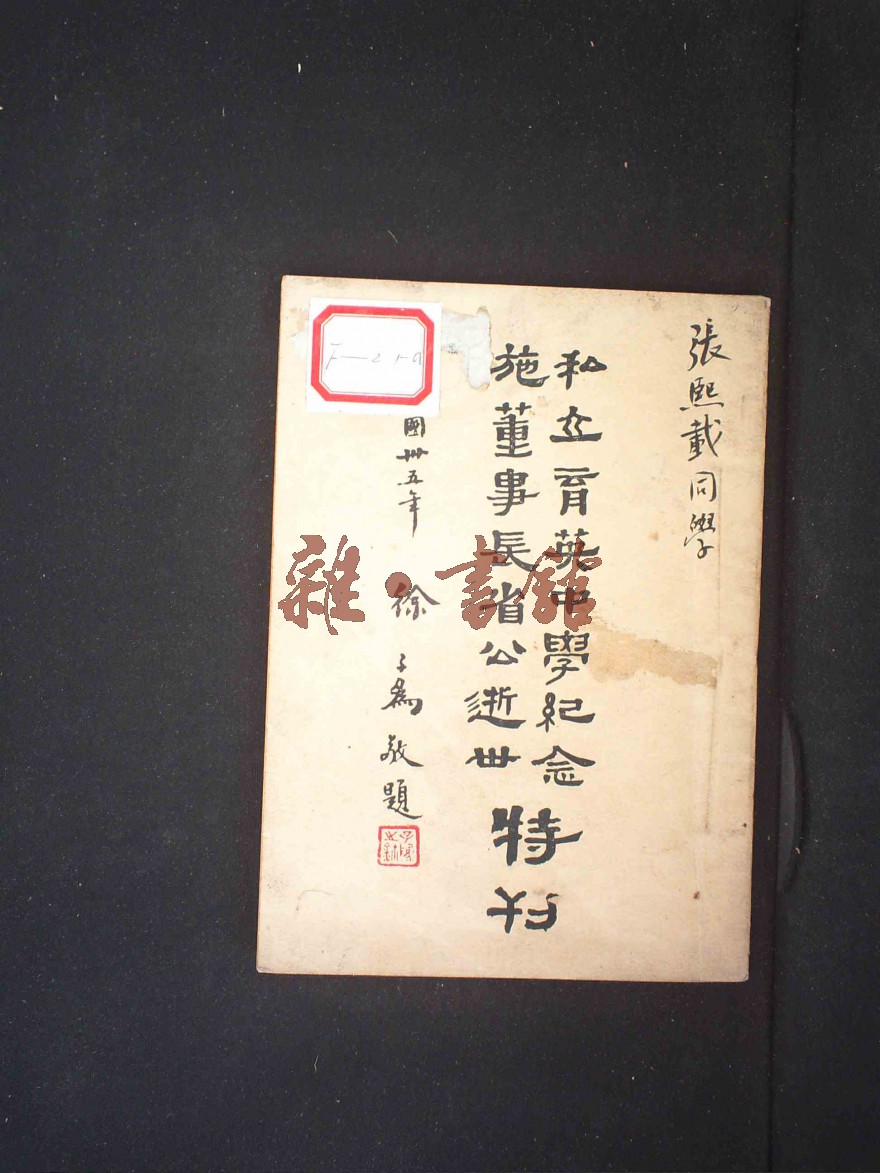 張熙載同學
私立育英中學紀念
施董事長省公逝世
特刊
國卅五年 徐子為敬題
雜·書館